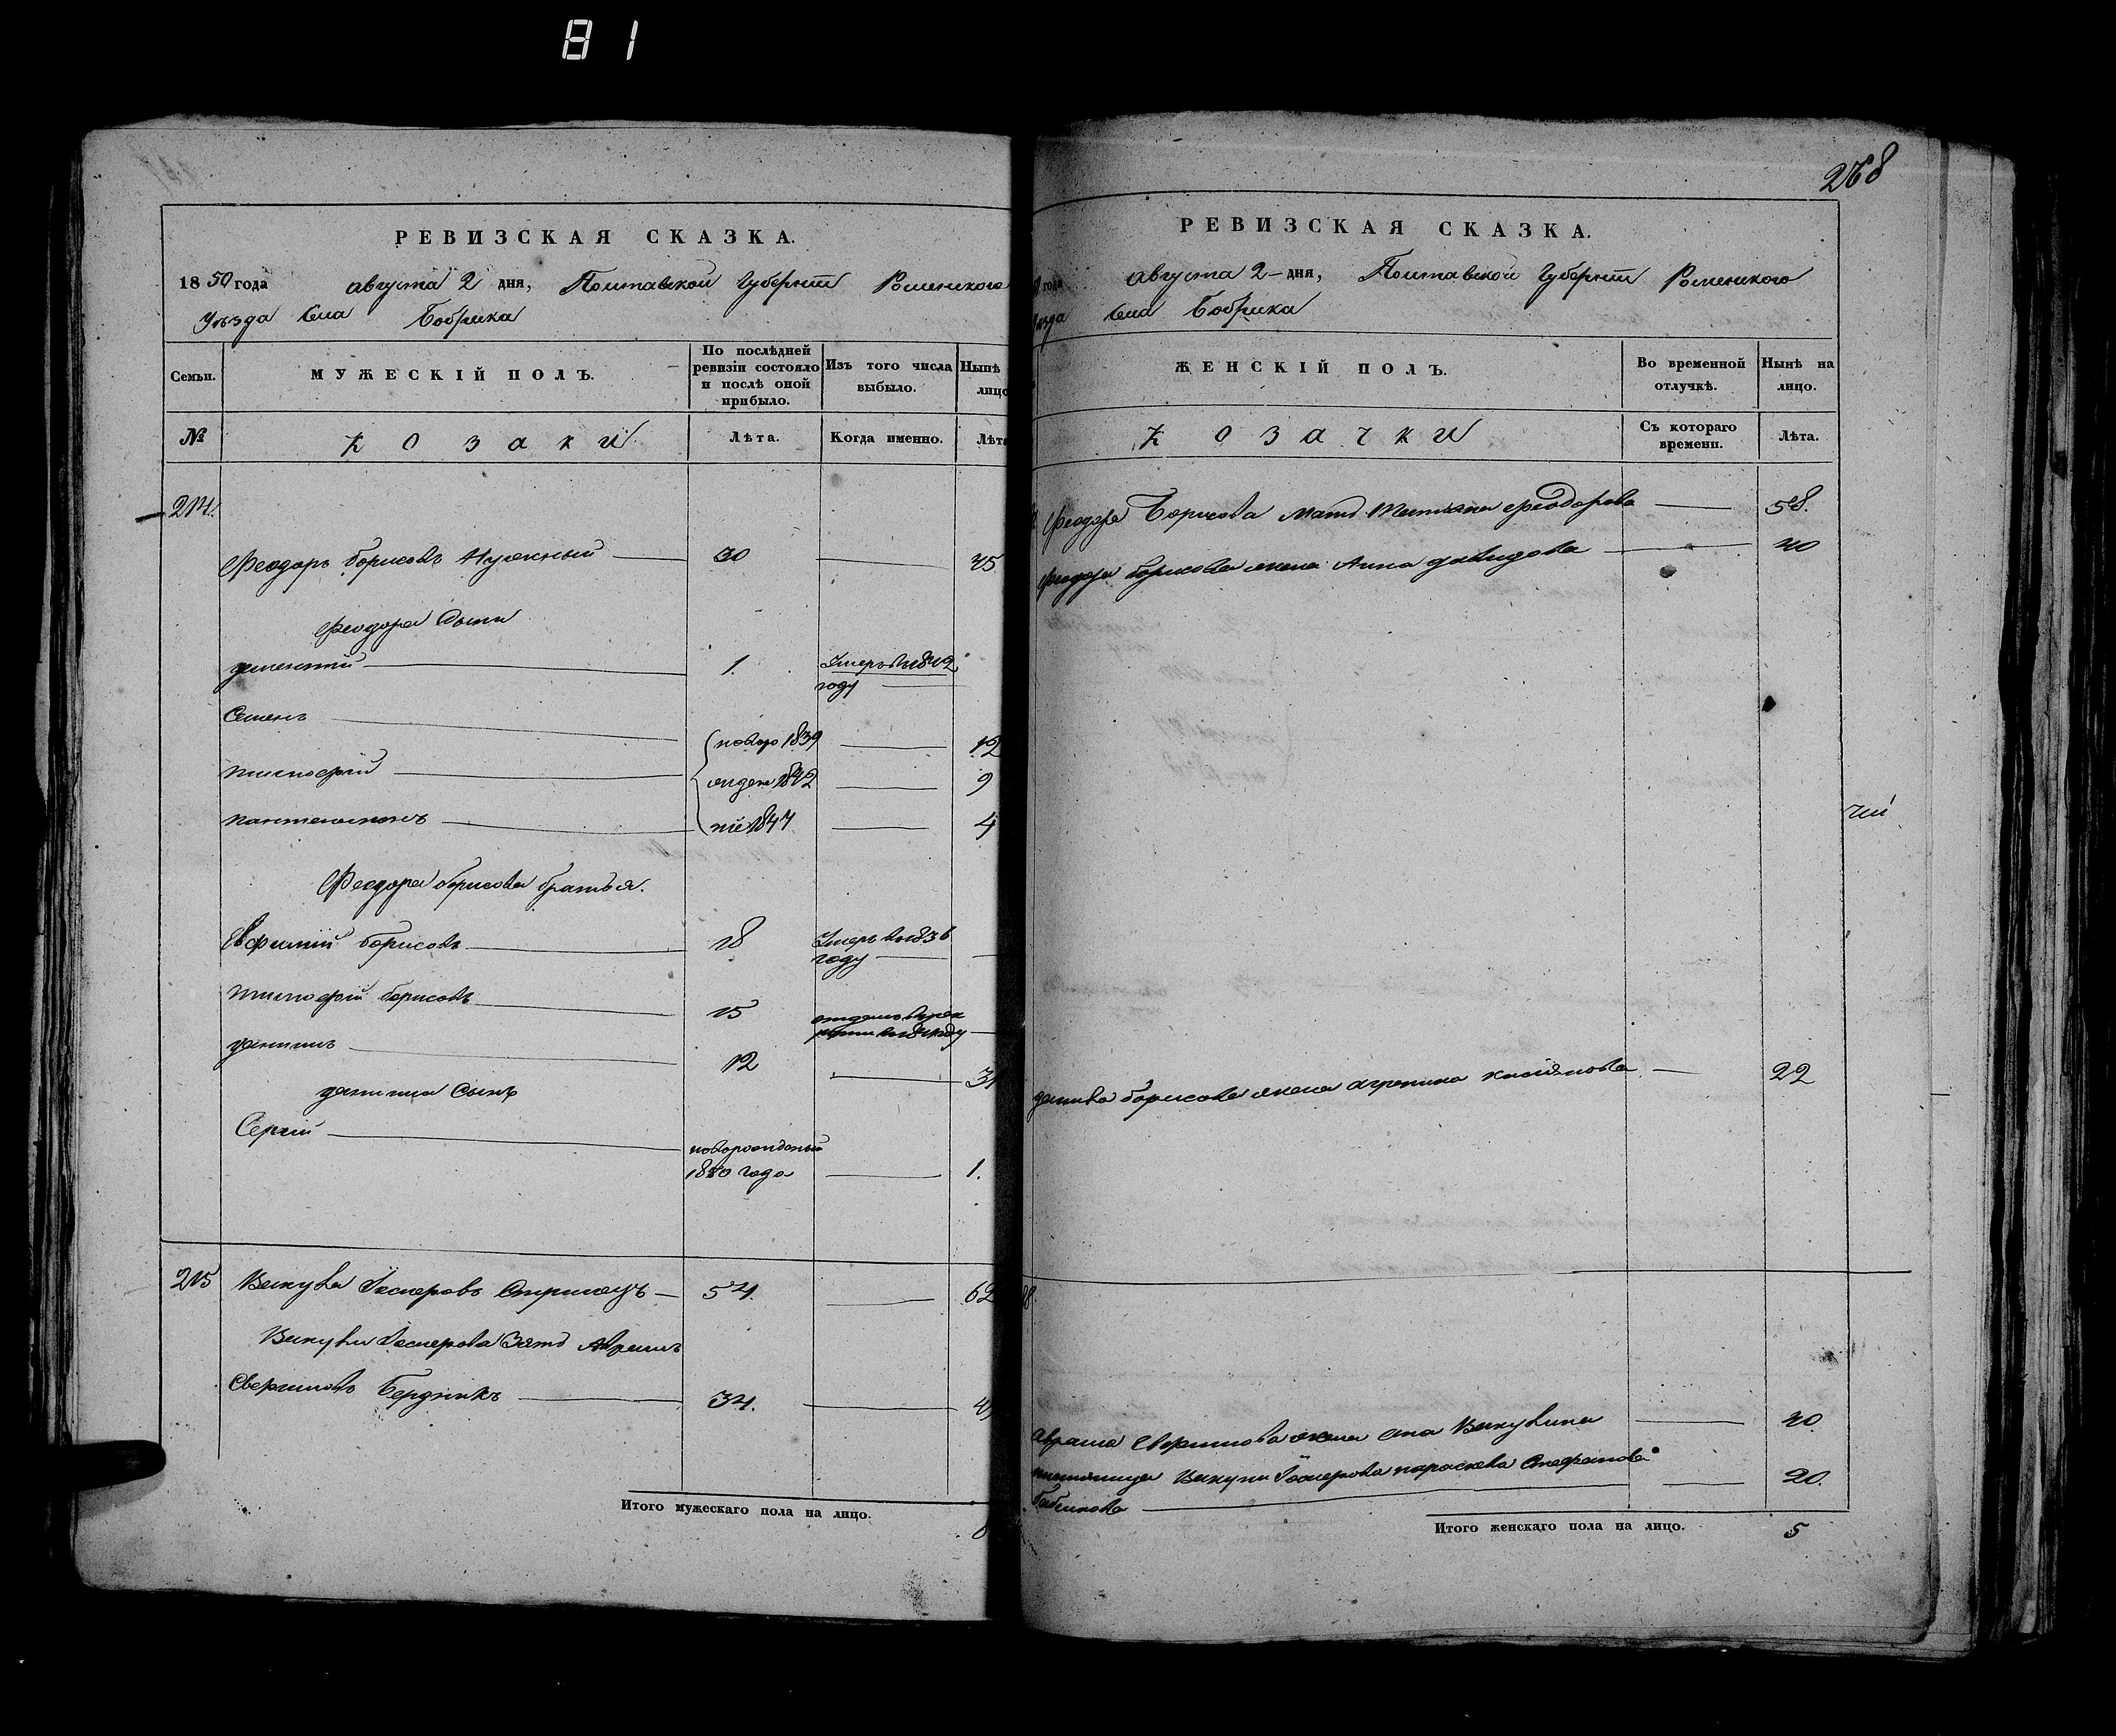 81
РЕВИЗСКАЯ СКАЗКА.
1850 года августа 2 дня, Полтавской Губернии Роменского
Уѣзда Села Бобрика
Семьи.
МУЖЕСКІЙ ПОЛЪ.
По послѣдней
ревизіи состояло
и послѣ оной
прибыло.
Изъ того числа
выбыло.
Нынѣ
лицо
№
Козаки
Лѣта.
Когда именно.
Лѣта
214.
Феодоръ Борисовъ Нужный 30 45
Феодора Сыны
Дементій 1. Умеръ въ 1842
году
Семенъ новоро 1839 12
Тимофей жден 1842 9
Пантелимонъ ніе 1847 4
Феодора Борисова братья.
Евфимій Борисовъ 18 Умеръ въ 1836
году
Тимофей Борисовъ 15
Данилъ 12
Данила Сынъ
Сергій новорожденый
1850 года 1.
215 Вакула Борисовъ 54. 62
Вакулы Зять Аврамъ
Бердникъ 34.
Итого мужескаго пола на лицо.
268
РЕВИЗСКАЯ СКАЗКА.
года августа 2 дня, Полтавской Губернии Роменского
Села Бобрика
ЖЕНСКІЙ ПОЛЪ.
Во временной
отлучкѣ.
Нынѣ на
лицо.
Козачки
Съ котораго
времени.
Лѣта.
Феодора Борисова мать Татьяна Феодорова 58.
Феодора Борисова жена Анна Давидова 40
Данила Борисова жена Агрепина 22
Аврама жена Анна Вакулина 40
Вакулы Параскева Стефанова 20.
Итого женскаго пола на лицо. 5